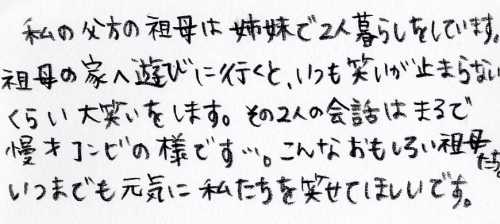 私の父方の祖母は姉妹で2人暮らしをしています。
祖母の家へ遊びに行くと、いつも笑いが止まらない
くらい大笑いをします。その2人の会話はまるで
慢才コンビの様です…。こんなおもしろい祖母たち。
いつまでも元気に私たちを笑せてほしいです。